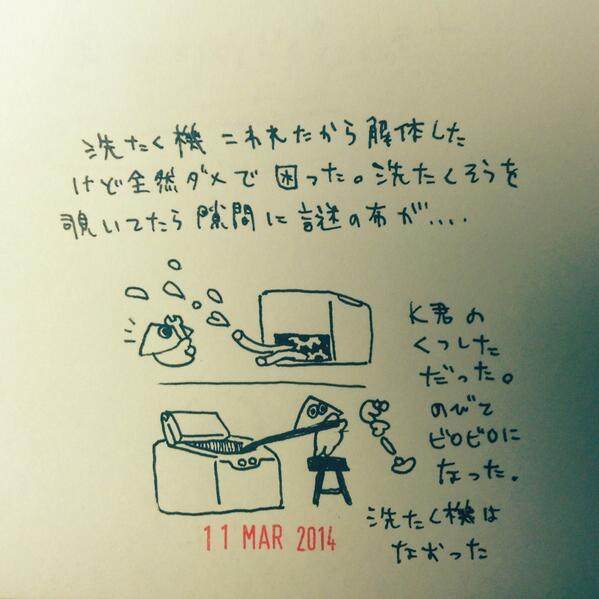 洗たく機 こわれたから 解体した
けど全然ダメで 困った。洗たくそうを
覗いてたら 隙間に 謎の布が....
K君の
くつした
だった。
のびて
ビロビロに
なった。
洗たく機は
なおった
11 MAR 2014